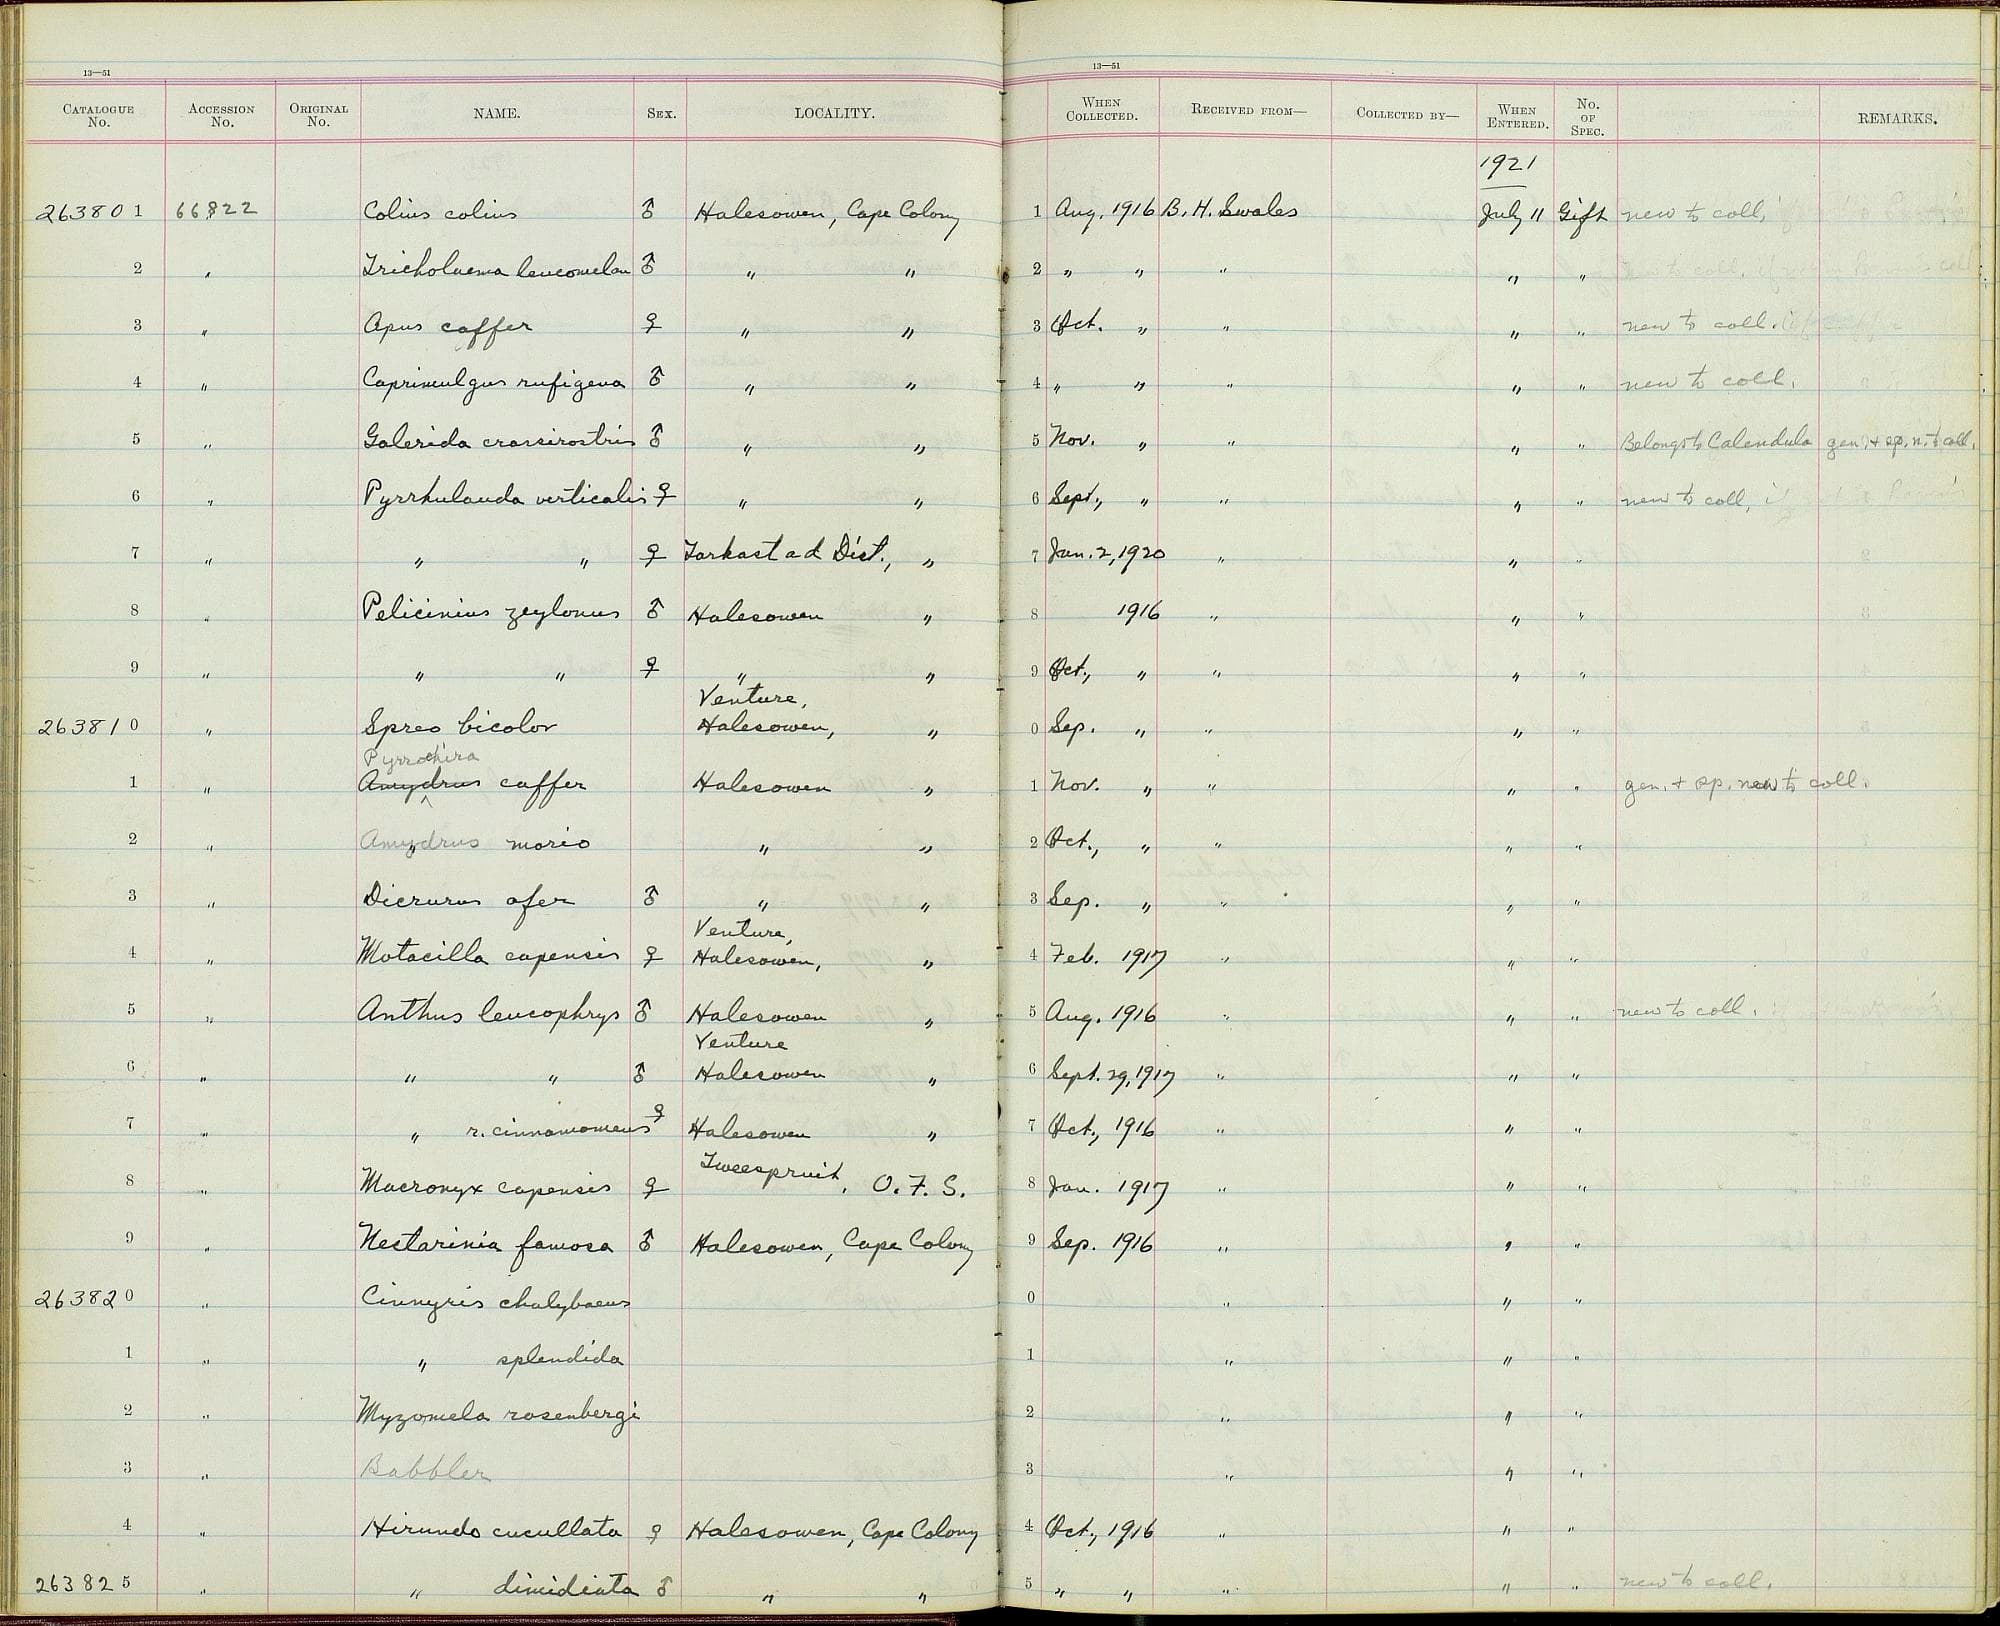 13—51 13—51
CATALOGUE No. ACCESSION No. ORIGINAL No. NAME. SEX. LOCALITY. WHEN COLLECTED. RECEIVED FROM— COLLECTED BY— WHEN ENTERED. No. OF SPEC. REMARKS.
1921
263801 66822 Colius colius ♂ Halesowen, Cape Colony 1 Aug. 1916 B. H. Swales July 11 Gift new to coll.
2 " Tricholaema leucomelan ♂ " " 2 " " " " "
3 " Apus caffer ♀ " " 3 Oct. " " " " new to coll.
4 " Caprimulgus rufigena ♂ " " 4 " " " " " new to coll.
5 " Galerida crassirostris ♂ " " 5 Nov. " " " " Belongs to Calendula gen. + sp. n. to coll.
6 " Pyrrhulauda verticalis ♀ " " 6 Sept., " " " " new to coll.
7 " " " ♀ Tarkastad Dist., " 7 Jan. 2, 1920 " " "
8 " Pelicinius zeylonus ♂ Halesowen " 8 1916 " " "
9 " " " ♀ " " 9 Oct., " " " "
Venture,
263810 " Spreo bicolor Halesowen, " 0 Sep. " " " "
Pyrrocheira
1 " Amydrus caffer Halesowen " 1 Nov. " " " " gen. + sp. new to coll.
2 " Amydrus morio " " 2 Oct., " " " "
3 " Dicrurus afer ♂ " " 3 Sep. " " " "
Venture,
4 " Motacilla capensis ♀ Halesowen, " 4 Feb. 1917 " " "
5 " Anthus leucophrys ♂ Halesowen " 5 Aug. 1916 " " " new to coll.
Venture
6 " " " ♂ Halesowen " 6 Sept. 29, 1917 " " "
7 " " r. cinnamomeus ♀ Halesowen " 7 Oct., 1916 " " "
8 " Macronyx capensis ♀ Tweespruit, O. F. S. 8 Jan. 1917 " " "
9 " Nectarinia famosa ♂ Halesowen, Cape Colony 9 Sep. 1916 " " "
263820 " Cinnyris chalybaeus 0 " " "
1 " " splendida 1 " " "
2 " Myzomela rosenbergi 2 " " "
3 " Babbler 3 " " "
4 " Hirundo cucullata ♀ Halesowen, Cape Colony 4 Oct., 1916 " " "
263825 " " dimidiata ♂ " " 5 " " " " " new to coll.